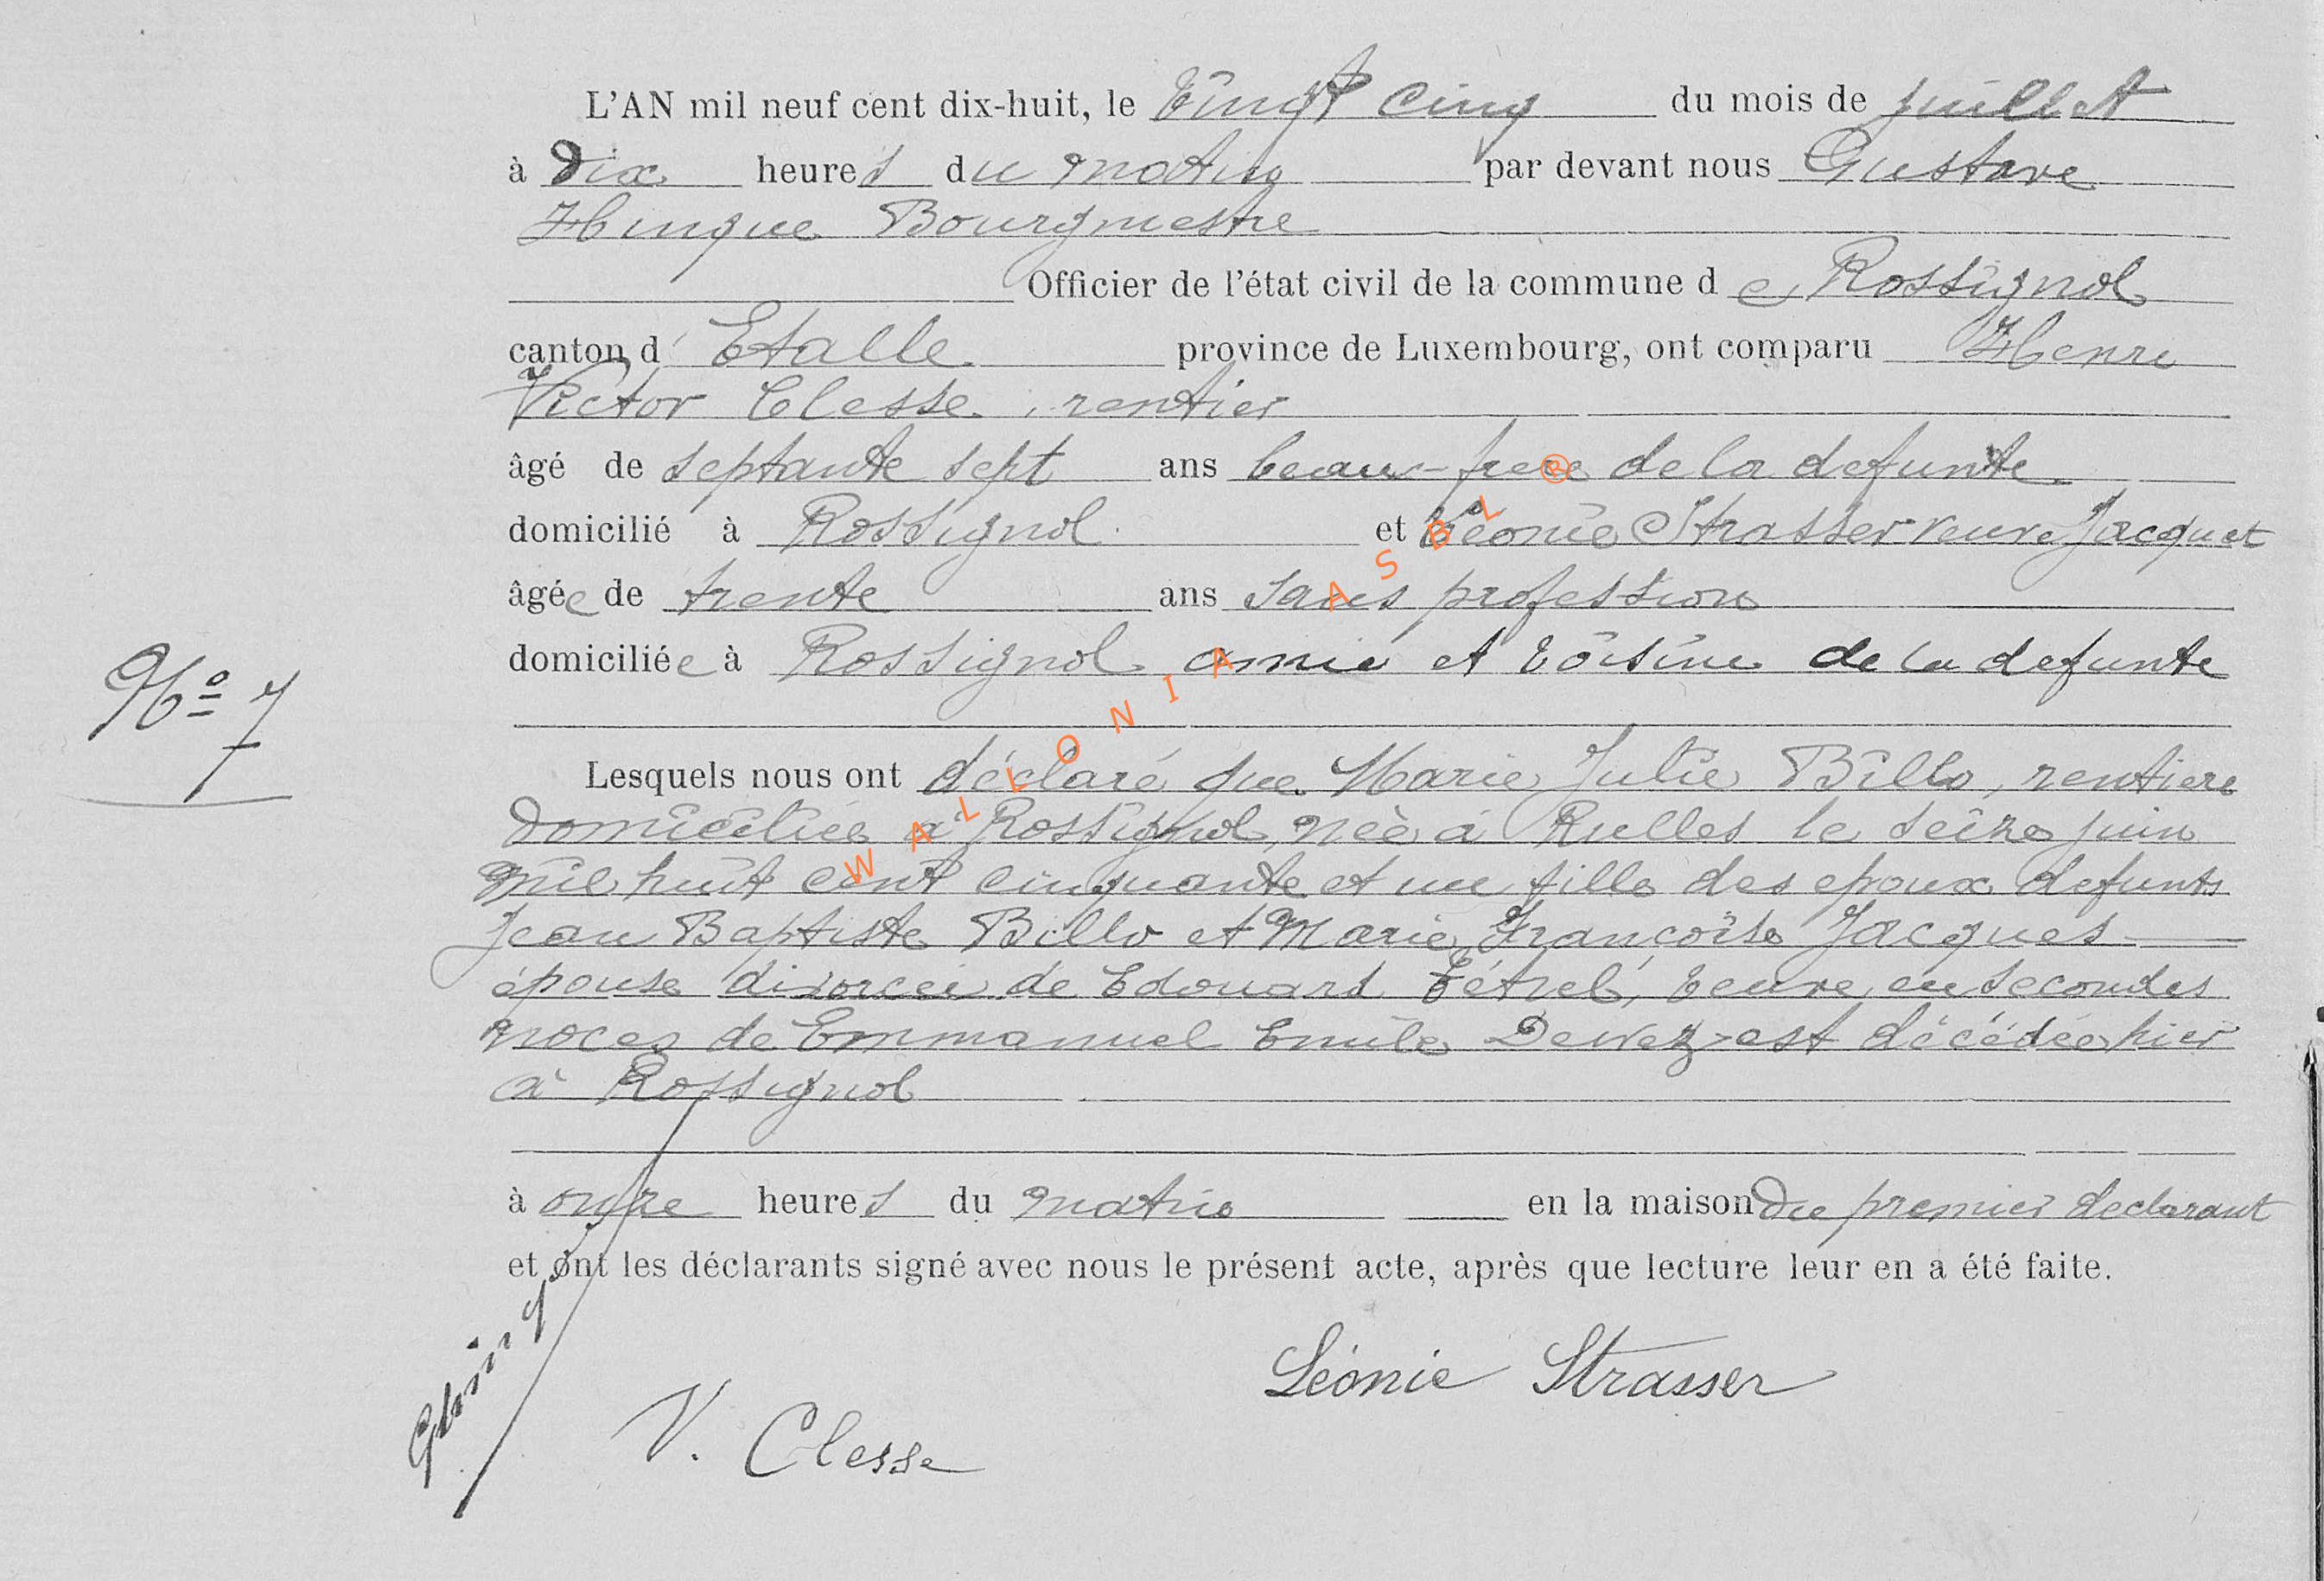 L'AN mil neuf cent dix-huit, le Vingt cinq du mois de juillet
à Dix heures du matin par devant nous Gustave
Hinque Bourgmestre
Officier de l'état civil de la commune de Rossignol
canton d' Etalle province de Luxembourg, ont comparu Henri
Victor Clesse, rentier
âgé de septante sept ans beau-frere de la defunte
domicilié à Rossignol et Léonie Strasser veuve Jacquet
âgée de trente ans sans profession
domiciliée à Rossignol amie et voisine de la defunte
No 7
Lesquels nous ont déclaré que Marie Julie Billo, rentiere
domiciliée à Rossignol, née à Rulles le seize juin
mil huit cent cinquante et un fille des epoux defunts
Jean Baptiste Billo et Marie Françoise Jacques
épouse divorcée de Edouard veuve en secondes
noces de Emmanuel Emile Dewez est décédée hier
à Rossignol
à onze heures du matin en la maison du premier declarant
et ont les déclarants signé avec nous le présent acte, après que lecture leur en a été faite.
Léonie Strasser
V. Clesse
WALLONIA ASBL ®